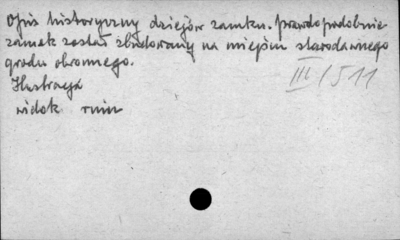 Opis historyczny dziejów zamku. Prawdopodobnie
zamek został zbudowany na miejscu starodawnego
grodu obronnego.
III/511
Ilustracja
widok ruin